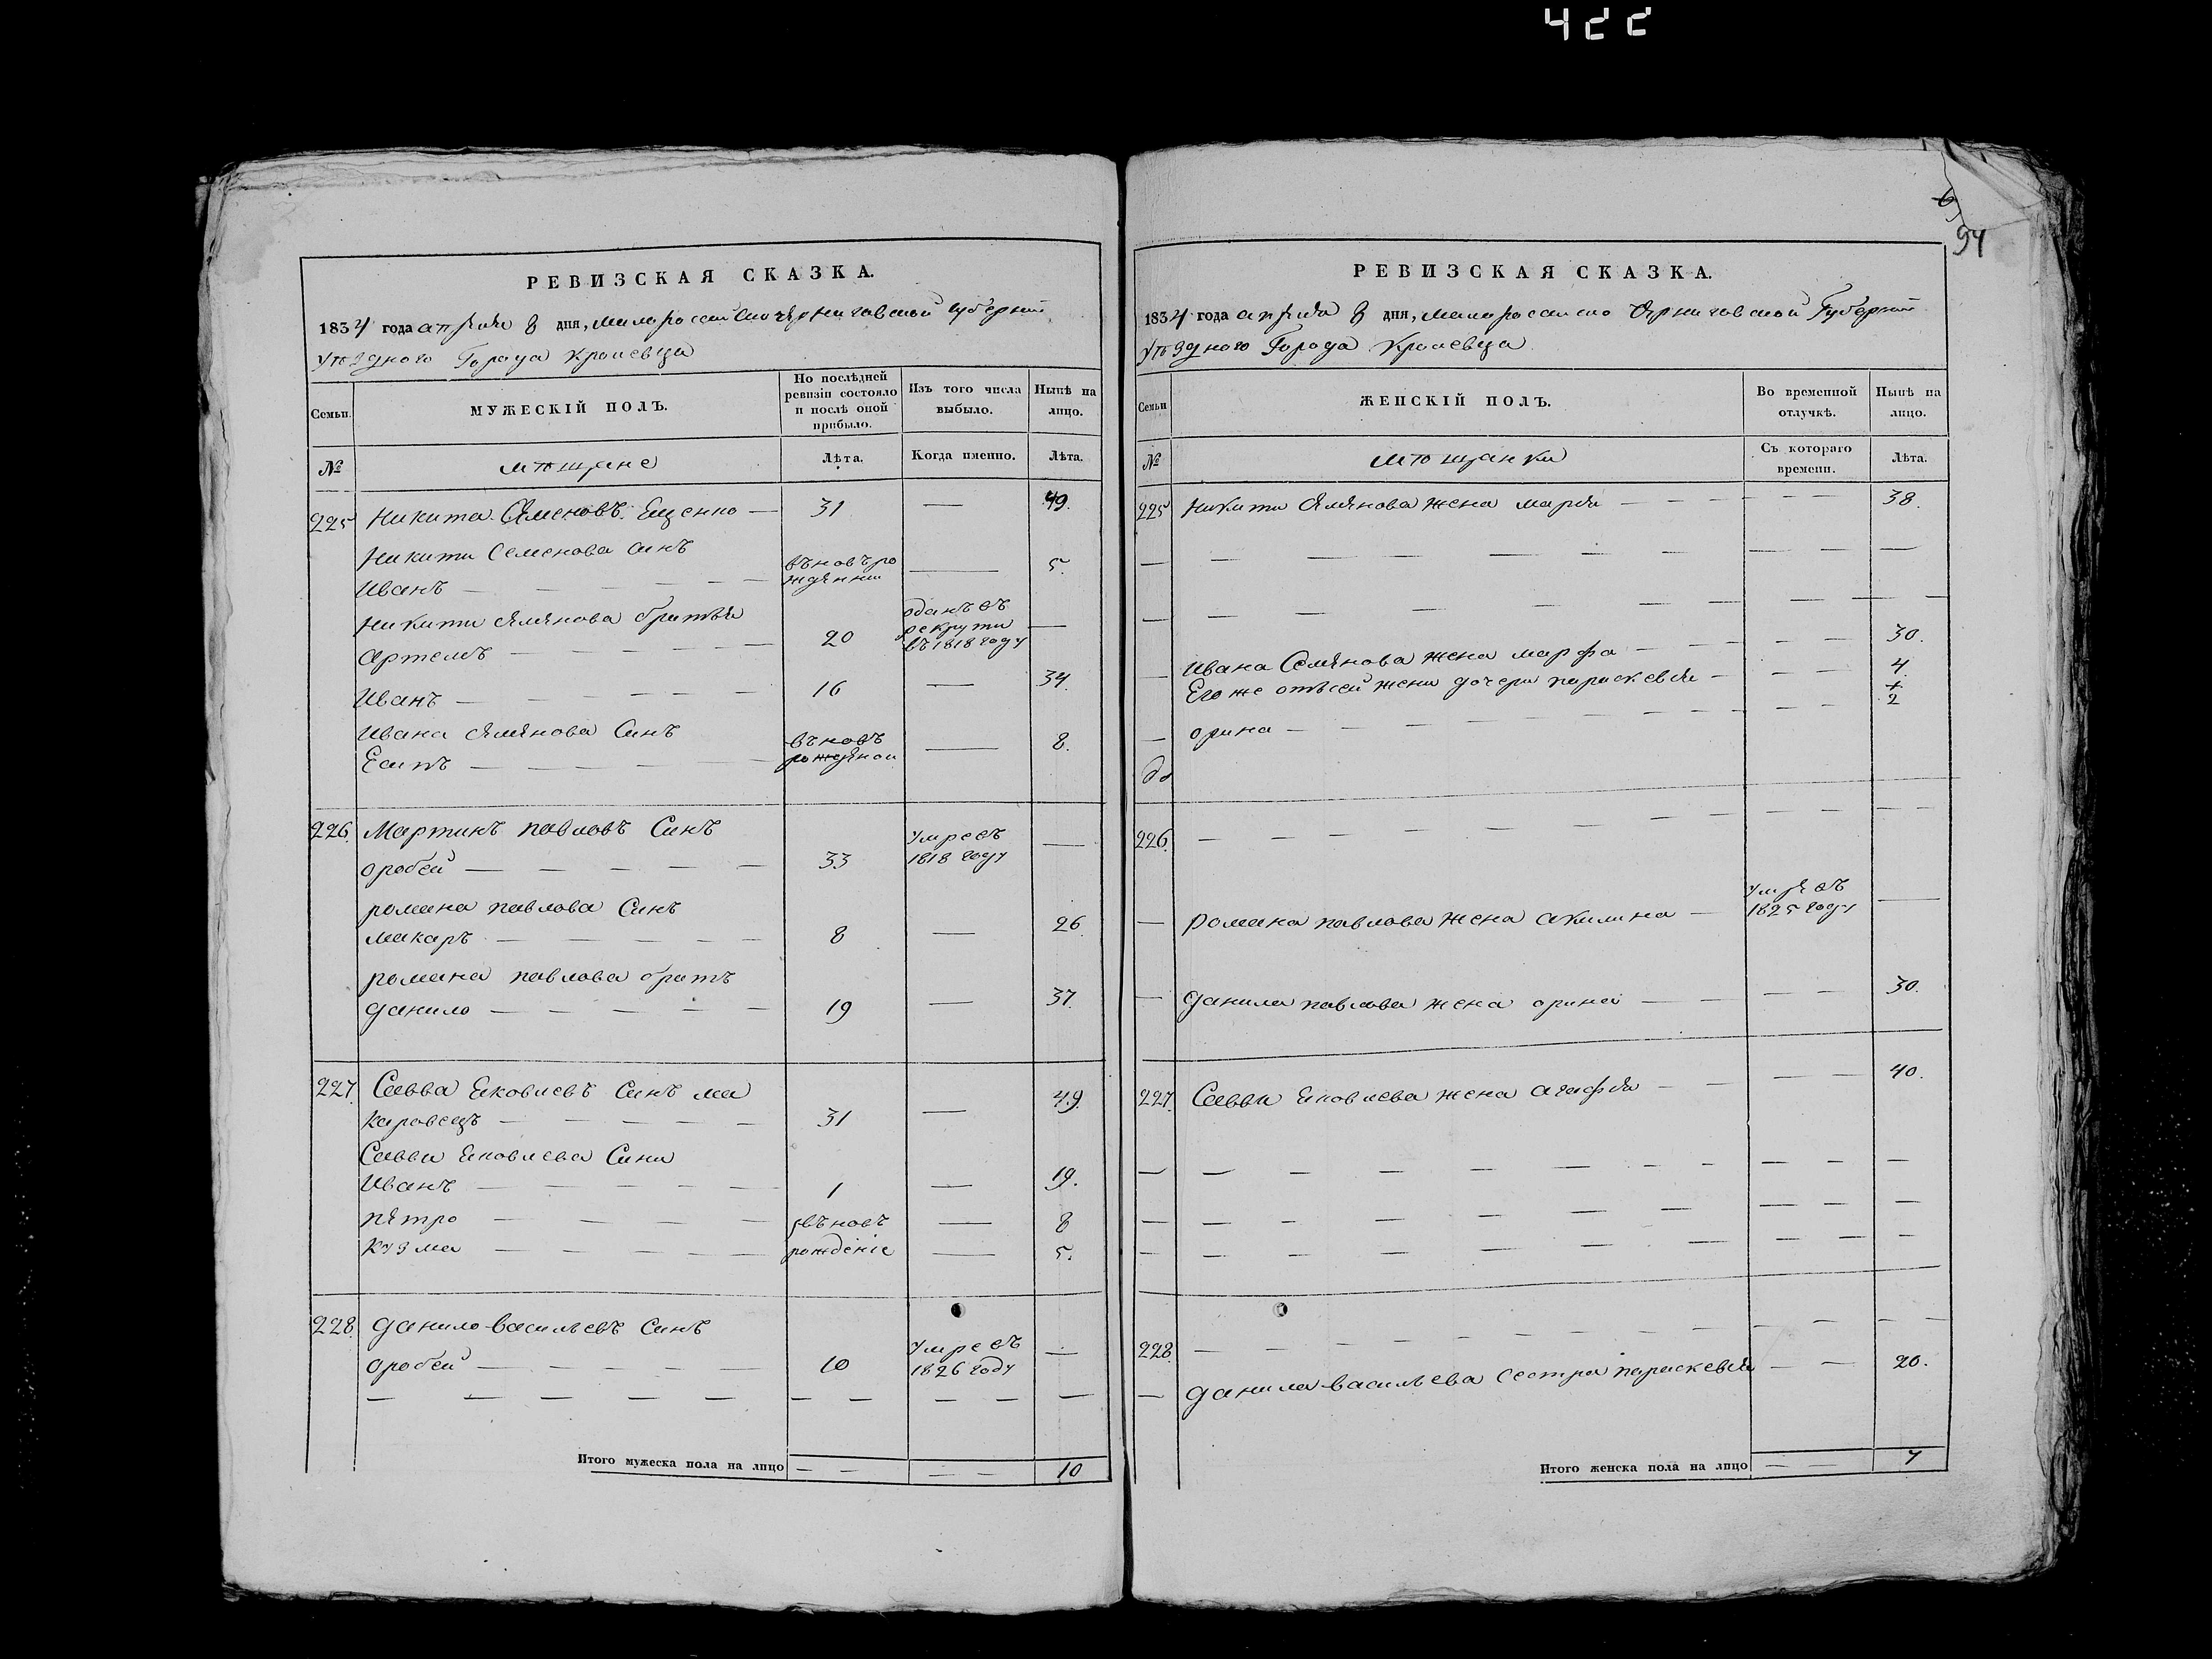 422
94
РЕВИЗСКАЯ СКАЗКА.
1834 года апреля 8 дня, малороссийской черниговской губернии
уѣздного Города Кролевца
Семьи.
МУЖЕСКІЙ ПОЛЪ.
По послѣдней ревизіи состояло и послѣ оной прибыло.
Изъ того числа выбыло.
Нынѣ на лицо.
№
мѣщане
Лѣта.
Когда именно.
Лѣта.
225 Никита Семеновъ Ещенко — 31 — 49.
Никити Семенова синъ
Иванъ — въновъро
жденни — 5.
Никити Семенова братья
Артемъ — 20 оданъ въ
рекрути
въ 1818 году —
Иванъ — 16 — 34.
Ивана Семенова Синъ
Есипъ — въновъ
рожденой — 8.
226. Мартинъ павловъ Синъ
оробей — 33 умре въ
1818 году —
романа павлова Синъ
макаръ — 8 — 26.
романа павлова братъ
данило — 19 — 37.
227. Савва Яковлевъ Синъ ма
каровецъ — 31 — 49.
Савви Яковлева Сини
Иванъ — 1 — 19.
петро — въновъ — 8
Кузма — рожденіе — 5.
228. данило васильевъ Синъ
оробей — 10 умре въ
1826 году —
Итого мужеска пола на лицо — — — — 10
РЕВИЗСКАЯ СКАЗКА.
1834 года апреля 8 дня, малороссийско Черниговской Губернии
уѣздного Города Кролевца
Семьи
ЖЕНСКІЙ ПОЛЪ.
Во временной отлучкѣ.
Нынѣ на лицо.
№
мѣщанки
Съ котораго времени.
Лѣта.
225 Никити Семенова жена марья — — — 38.
— Ивана Семенова жена марфа — — — 30.
Его же отъсей жени дочери параскевья — — — 4.
— орина — — — 2
226.
— романа павлова жена акилина — умре въ
1825 году —
— данила павлова жена орина — — — 30.
227. Савви Яковлева жена агафья — — — 40.
228.
— данила васильева сестра параскевья — — 20.
Итого женска пола на лицо — — 7